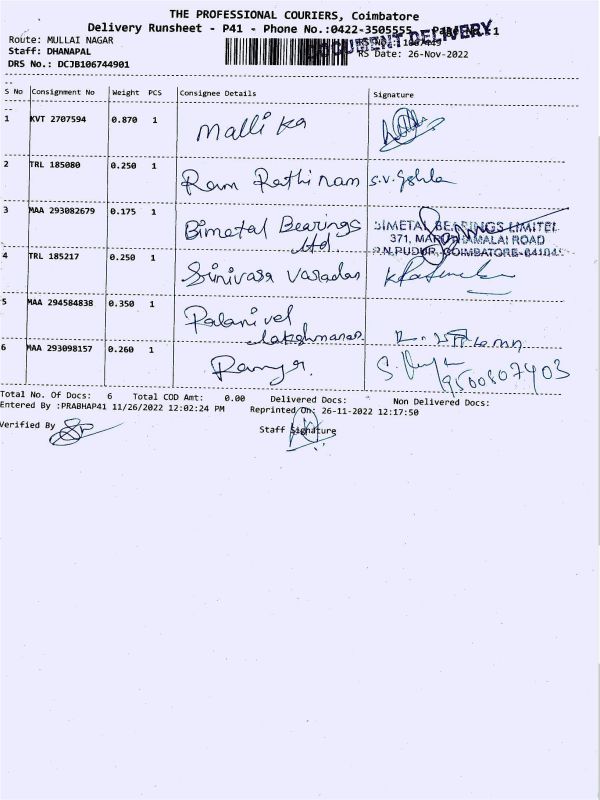 THE PROFESSIONAL COURIERS, Coimbatore
Delivery Runsheet - P41 - Phone No.:0422-3505555
DOCUMENT DELIVERY
Route: MULLAI NAGAR
Staff: DHANAPAL RS Date: 26-Nov-2022
DRS No.: DCJB106744901
S No Consignment No Weight PCS Consignee Details Signature
1 KVT 2707594 0.870 1 Mallika
2 TRL 185080 0.250 1 Ram Rathinam S.V.
3 MAA 293082679 0.175 1 Bimetal Bearings Ltd.
BIMETAL BEARINGS LIMITED
371, MARUDHAMALAI ROAD
P.N.PUDUR, COIMBATORE-641041
4 TRL 185217 0.250 1 Srinivasa Varadan
5 MAA 294584838 0.350 1 Palanivel
Lakshmanan
6 MAA 293098157 0.260 1 Ramya.
9500807403
Total No. Of Docs: 6 Total COD Amt: 0.00 Delivered Docs: Non Delivered Docs:
Entered By :PRABHAP41 11/26/2022 12:02:24 PM Reprinted On: 26-11-2022 12:17:50
Verified By
Staff Signature